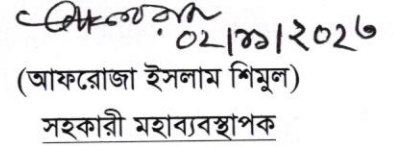 ০২/১১/২০২৬
(আফরোজা ইসলাম শিমুল)
সহকারী মহাব্যবস্থাপক